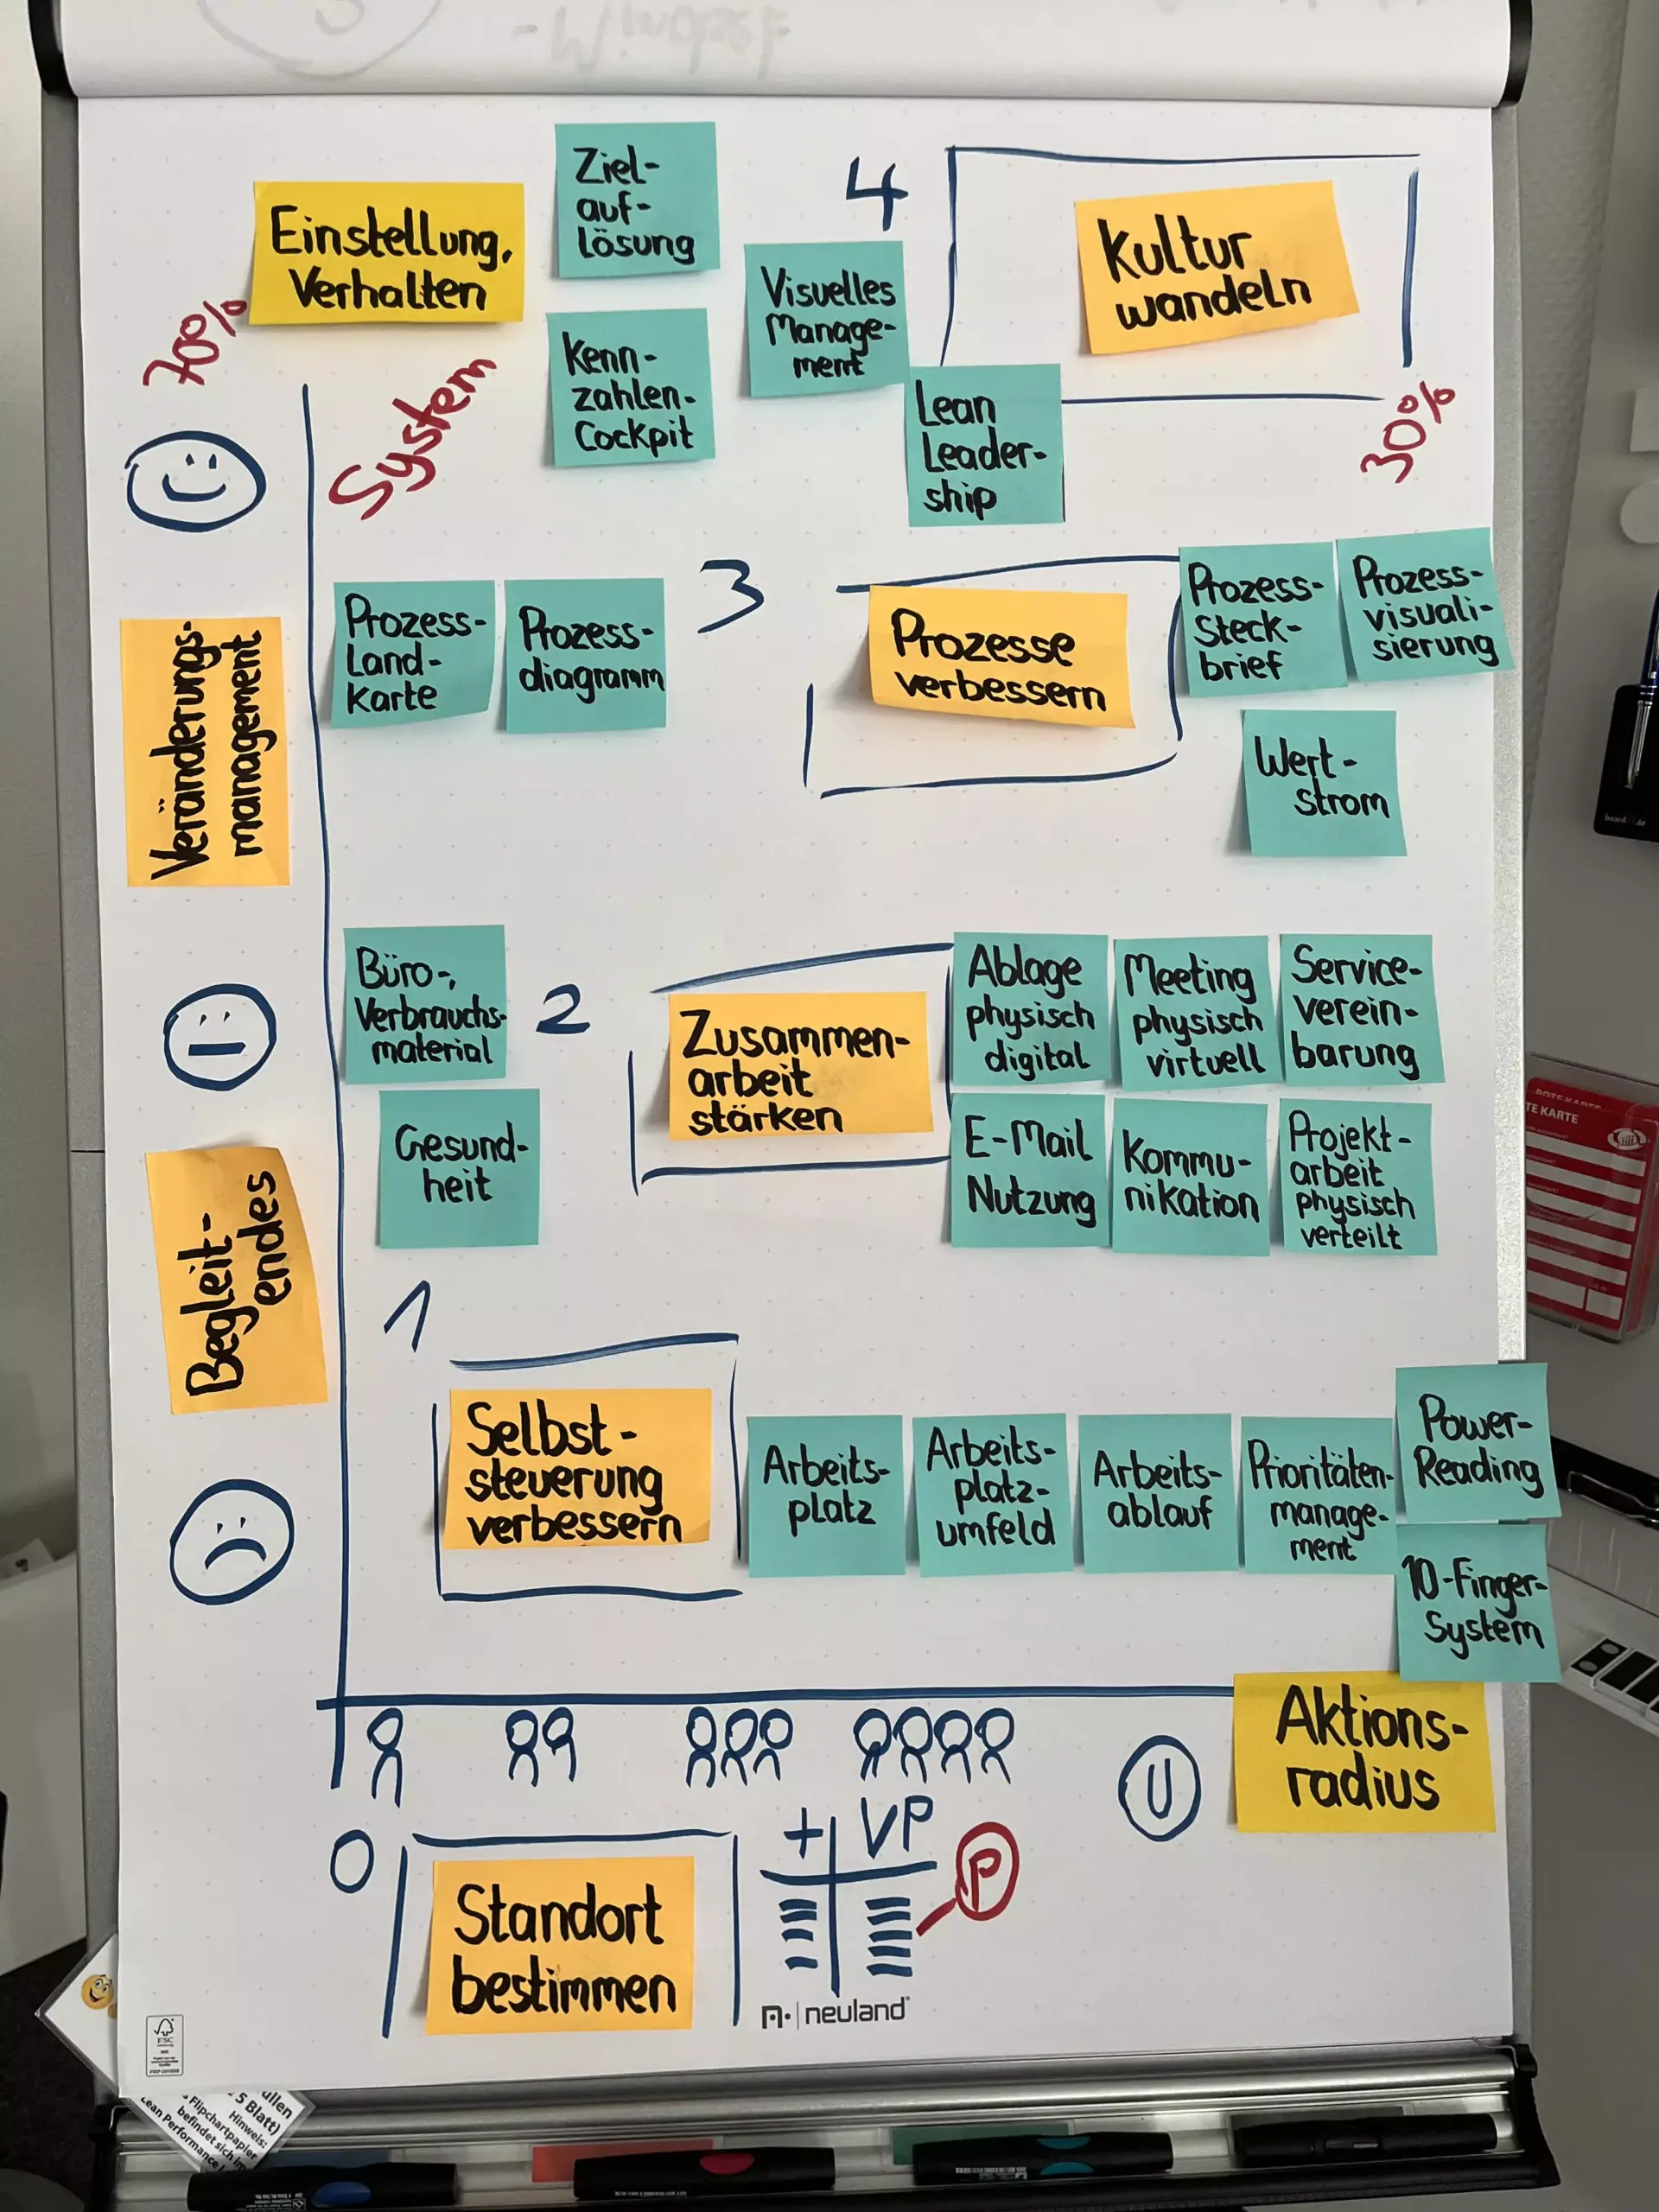 Einstellung,
Verhalten
70%
System
Ziel-
auf-
lösung
Kenn-
zahlen-
Cockpit
Visuelles
Manage-
ment
Lean
Leader-
ship
4
Kultur
wandeln
30%
Veränderungs-
management
Prozess-
Land-
karte
Prozess-
diagramm
3
Prozesse
verbessern
Prozess-
Steck-
brief
Prozess-
visuali-
sierung
Wert-
strom
Büro-,
Verbrauchs-
material
Gesund-
heit
2
Zusammen-
arbeit
stärken
Ablage
physisch
digital
Meeting
physisch
virtuell
Service-
verein-
barung
E-Mail
Nutzung
Kommu-
nikation
Projekt-
arbeit
physisch
verteilt
Begleit-
endes
1
Selbst-
steuerung
verbessern
Arbeits-
platz
Arbeits-
platz-
umfeld
Arbeits-
ablauf
Prioritäten-
manage-
ment
Power-
Reading
10-Finger-
System
U
Aktions-
radius
0
Standort
bestimmen
+ VP
P
neuland
FSC
TE KARTE
ullen
5 Blatt)
Hinweis:
Flipchartpapier
befindet sich im
Lean Performance